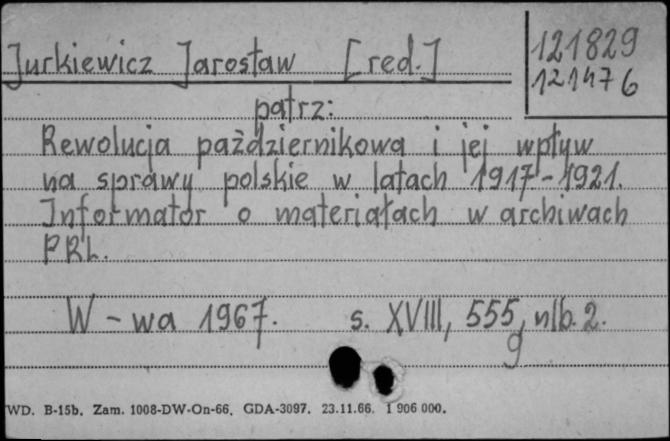 121829
121476
Jurkiewicz Jarosław [red.]
patrz:
Rewolucja październikowa i jej wpływ
na sprawy polskie w latach 1917-1921.
Informator o materiałach w archiwach
PRL.
W-wa 1967. s. XVIII, 555, nlb. 2.
9
WD. B-15b. Zam. 1008-DW-On-66. GDA-3097. 23.11.66. 1 906 000.